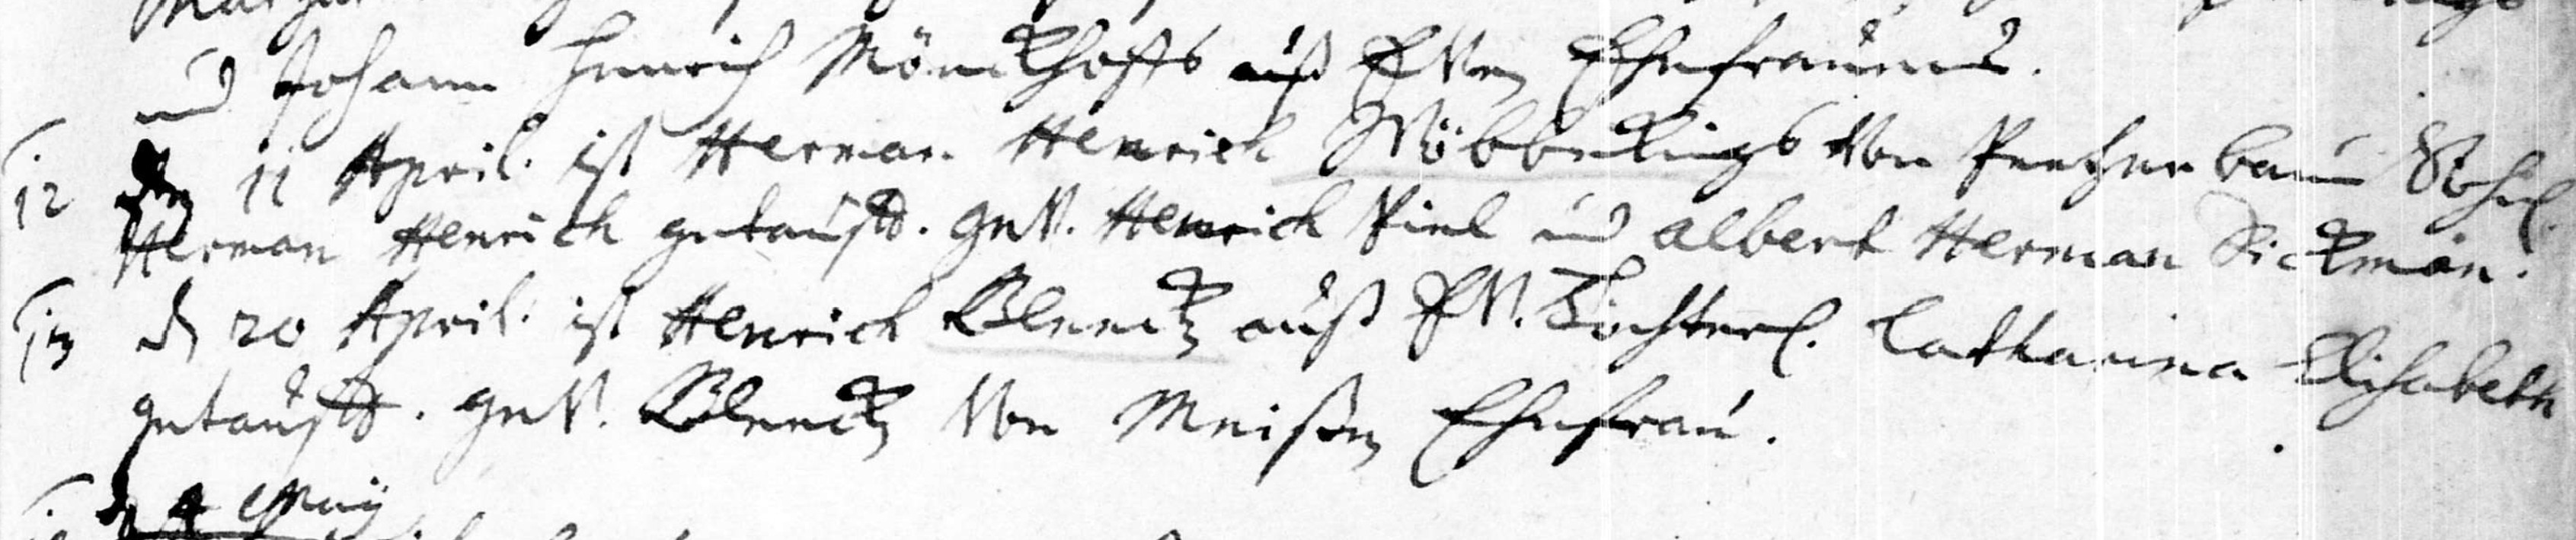 und Johann Henrich Mönckhoffs auß Ehefrauens.
12 den 11 April. ist Herman Henrich Wöbbekings von Söhnl.
Herman Henrich getaufft. gev. Henrich Piel und Albert Herman Rickman.
13 d 20 April. ist Henrich Blenck auß Töchterl. Catharina Elisabeth
getaufft. gev. Blenck von Meißen Ehefrau.
d 4 May